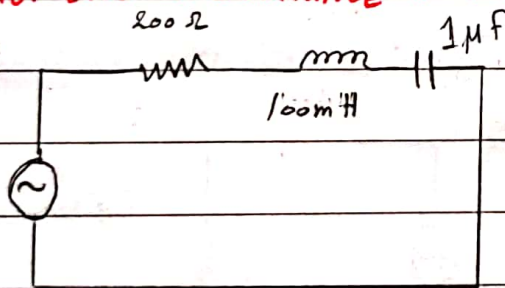 200 Ω
1 μF
100mH
~